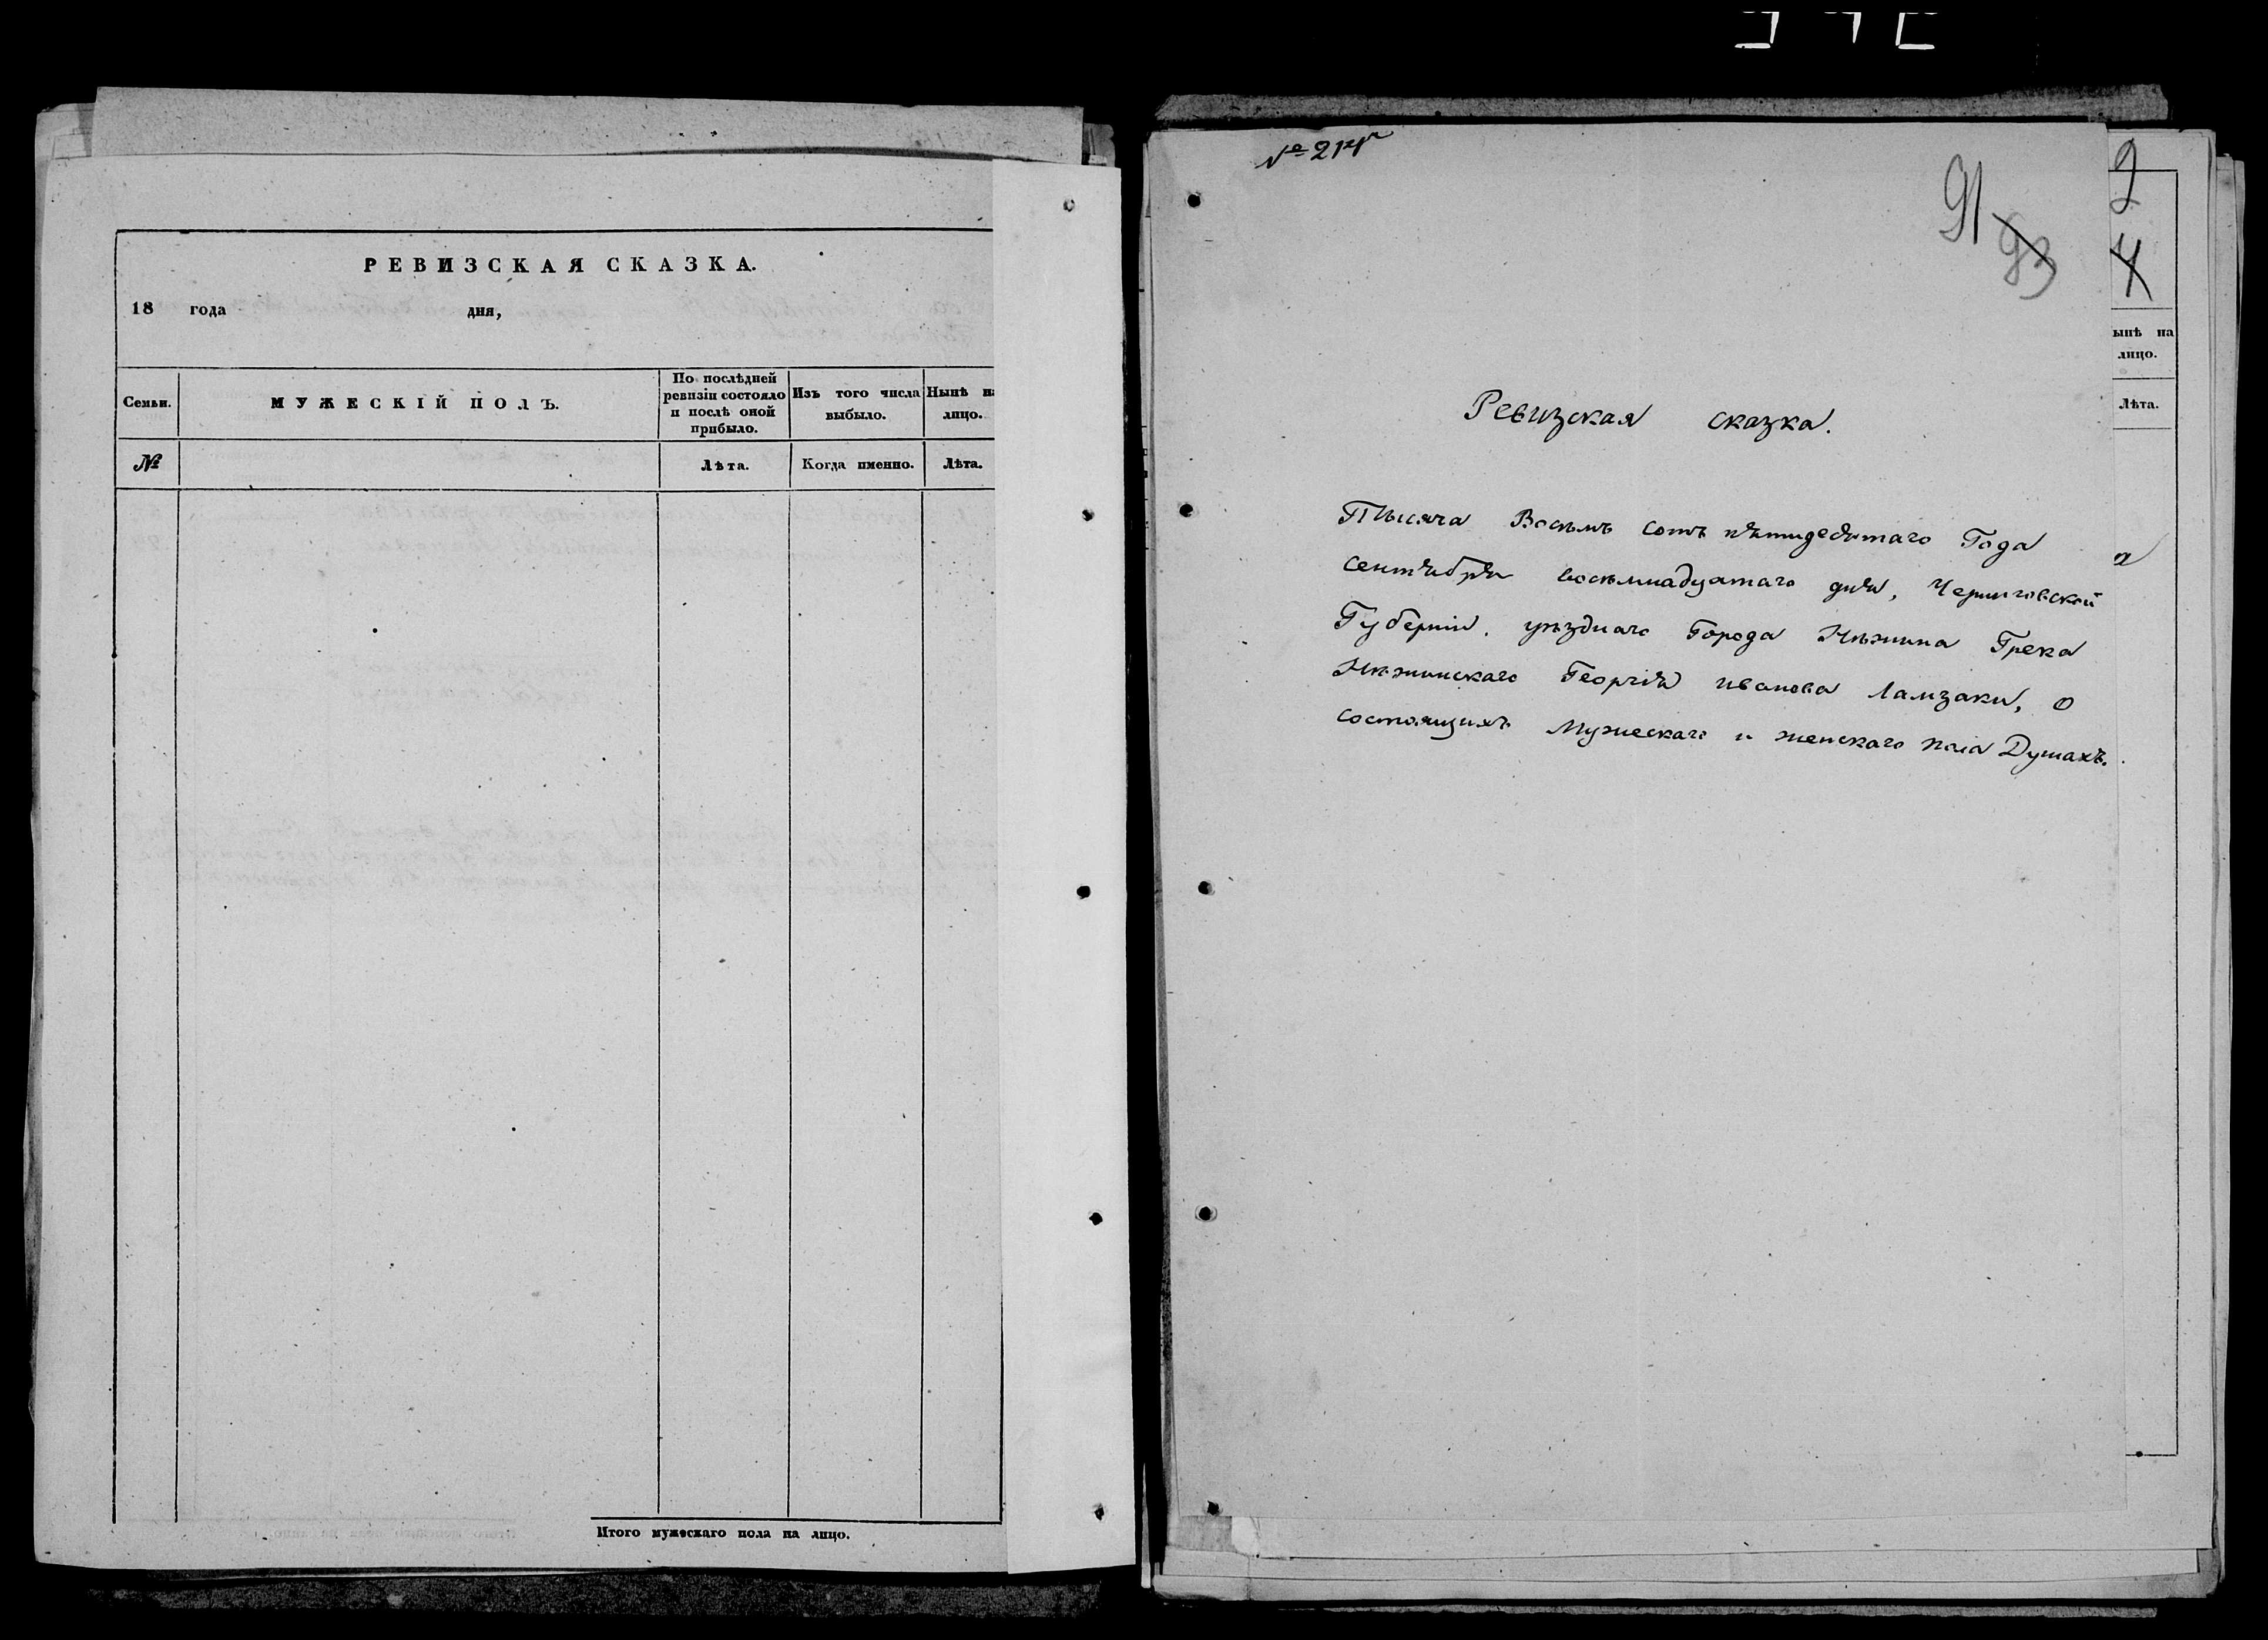 РЕВИЗСКАЯ СКАЗКА.
18 года дня,
Семьи.
МУЖЕСКІЙ ПОЛЪ.
По послѣдней
ревизіи состояло
и послѣ оной
прибыло.
Изъ того числа
выбыло.
Нынѣ на
лицо.
№
Лѣта.
Когда именно.
Лѣта.
Итого мужескаго пола на лицо.
91
93
Ревизская сказка.
Тысяча Восьмъ сотъ пятидесятаго Года
сентября восьмнадцатаго дня, Черниговской
Губерніи. уѣзднаго Города Нѣжина Грека
Нѣжинскаго Георгія иванова Ламзаки, о
состоящихъ Мужескаго и женскаго пола Душахъ.
2
4
ынѣ на
лицо.
Лѣта.
а